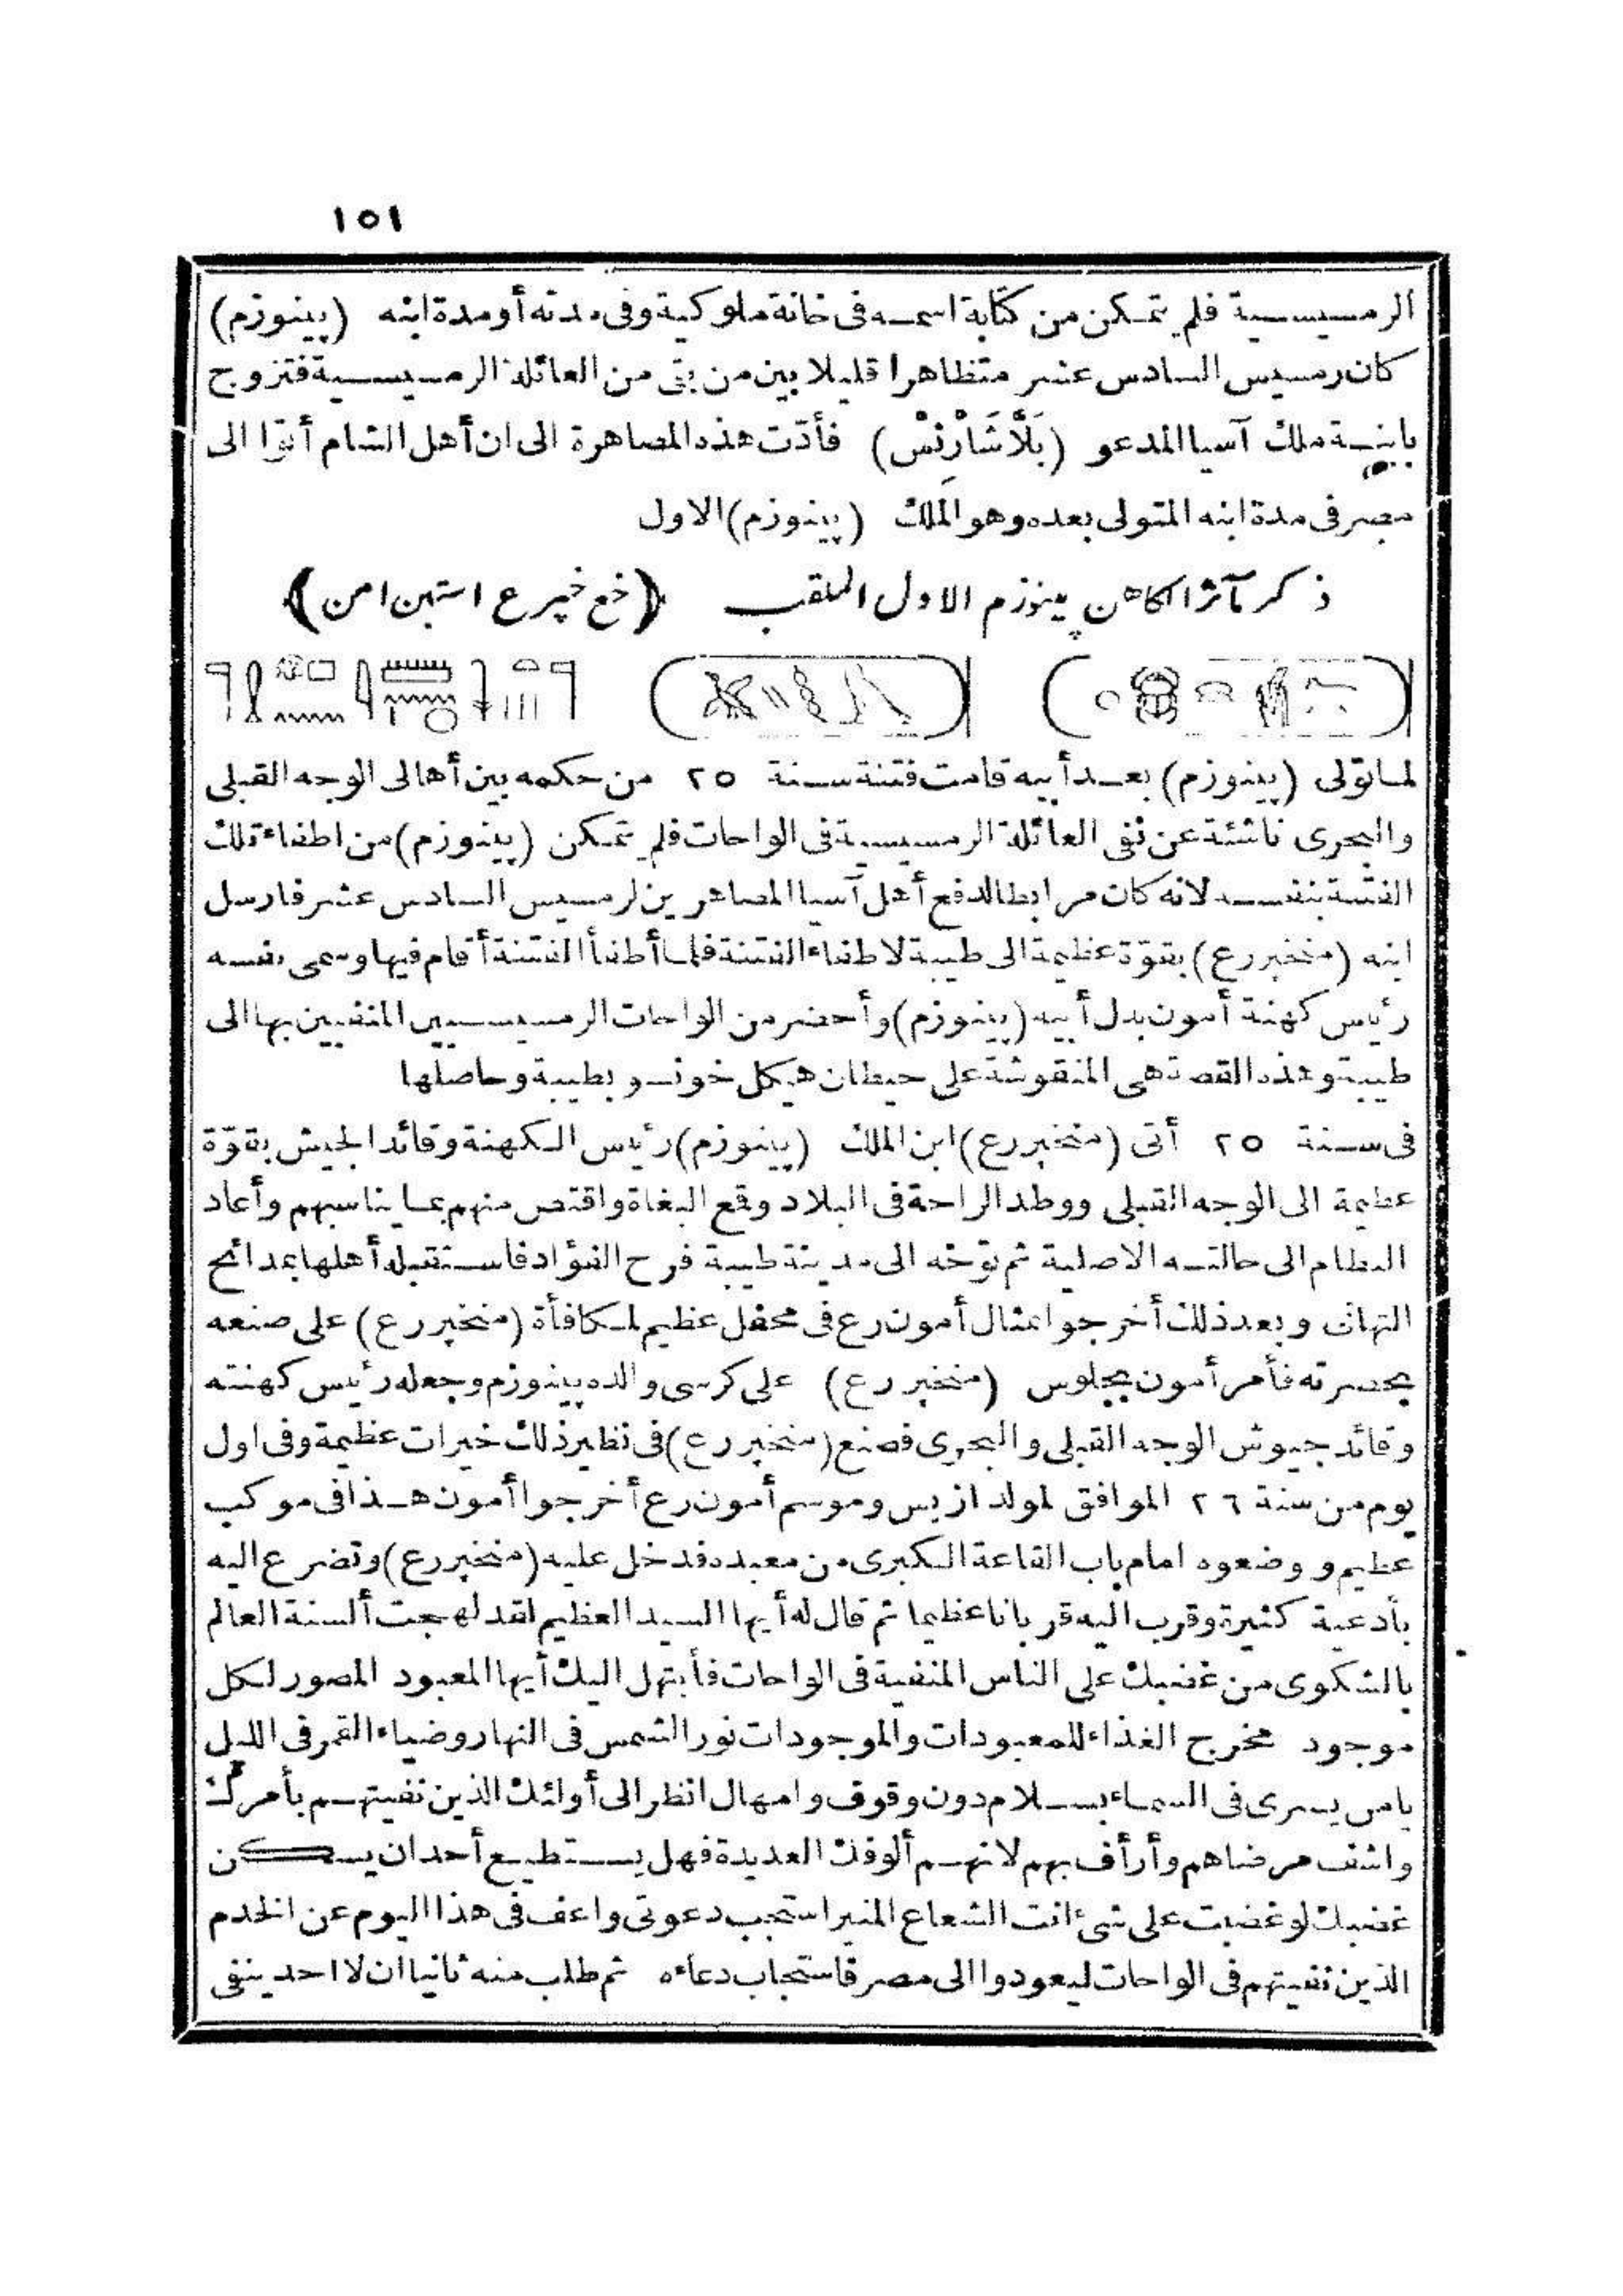 ١٥١
الرمسيسية فلم يتمكن من كتابة اسمه فى خانة ملوكية وفى مدته أو مدة ابنه (پينوزم)
كان رمسيس السادس عشر متظاهرا قليلا بين من بقى من العائلة الرمسيسية فتزوج
بابنة ملك آسيا المدعو (بَلاَّشَارْنِسْ) فأدّت هذه المصاهرة الى ان أهل الشام أتوا الى
مصر فى مدة ابنه المتولى بعده وهو الملك (پينوزم) الاول
ذكر مآثر الكاهن پينوزم الاول الملقب (خع خپر ع استپن امن)
لما تولى (پينوزم) بعد أبيه قامت فتنة سنة ٢٥ من حكمه بين أهالى الوجه القبلى
والبحرى ناشئة عن نفى العائلة الرمسيسية فى الواحات فلم يتمكن (پينوزم) من اطفاء تلك
الفتنة بنفسه لانه كان مرابطا لدفع أهل آسيا المصاهرين لرمسيس السادس عشر فارسل
ابنه (منخپررع) بقوّة عظيمة الى طيبة لاطفاء الفتنة فلما أطفأ الفتنة أقام فيها وسمى نفسه
رئيس كهنة أمون بدل أبيه (پينوزم) وأحضر من الواحات الرمسيسيين المنفيين بها الى
طيبة وهذه القصة هى المنقوشة على حيطان هيكل خونسو بطيبة وحاصلها
فى سنة ٢٥ أتى (منخپررع) ابن الملك (پينوزم) رئيس الكهنة وقائد الجيش بقوّة
عظيمة الى الوجه القبلى ووطد الراحة فى البلاد وقمع البغاة واقتص منهم بما يناسبهم وأعاد
النظام الى حالته الاصلية ثم توجّه الى مدينة طيبة فرح الفؤاد فاستقبله أهلها بمدائح
التهانى وبعد ذلك أخرجوا تمثال أمون رع فى محفل عظيم لمكافأة (منخپررع) على صنعه
بحضرته فأمر أمون بجلوس (منخپررع) على كرسى والده پينوزم وجعله رئيس كهنته
وقائد جيوش الوجه القبلى والبحرى فصنع (منخپررع) فى نظير ذلك خيرات عظيمة وفى اول
يوم من سنة ٢٦ الموافق لمولد ازيس وموسم أمون رع أخرجوا أمون هذا فى موكب
عظيم ووضعوه امام باب القاعة الكبرى من معبده فدخل عليه (منخپررع) وتضرع اليه
بأدعية كثيرة وقرب اليه قربانا عظيما ثم قال له أيها السيد العظيم لقد لهجت ألسنة العالم
بالشكوى من غضبك على الناس المنفية فى الواحات فأبتهل اليك أيها المعبود المصور لكل
موجود مخرج الغذاء للمعبودات والموجودات نور الشمس فى النهار وضياء القمر فى الليل
يامن يسرى فى السماء بسلام دون وقوف وامهال انظر الى أولئك الذين نفيتهم بأمرك
واشف مرضاهم وأرأف بهم لانهم ألوفك العديدة فهل يستطيع أحد ان يسكن
غضبك لو غضبت على شئ انت الشعاع المنير استجب دعوتى واعف فى هذا اليوم عن الخدم
الذين نفيتهم فى الواحات ليعودوا الى مصر فاستجاب دعاءه ثم طلب منه ثانيا ان لا احد ينفى